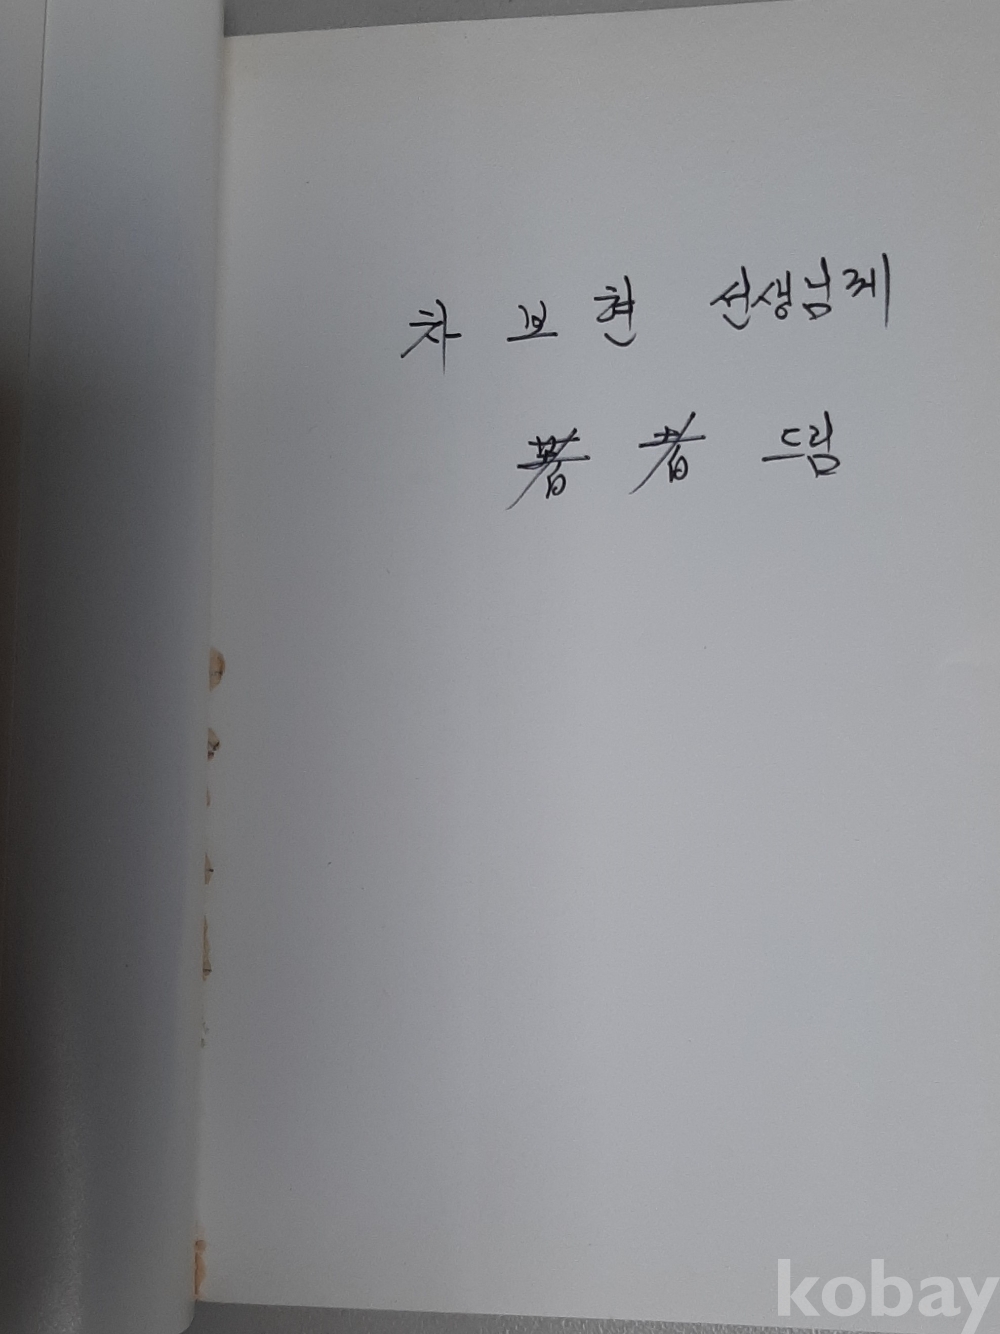 차보현 선생님께
著者 드림
kobay